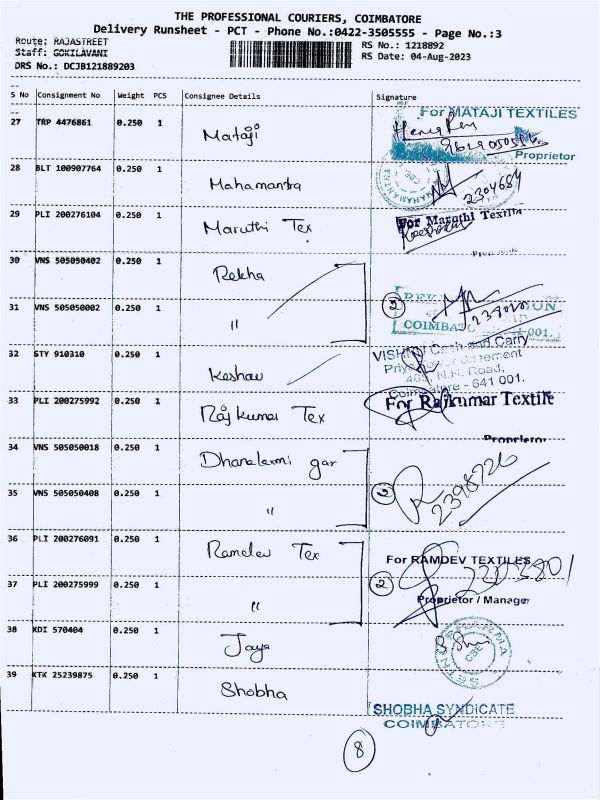 THE PROFESSIONAL COURIERS, COIMBATORE
Delivery Runsheet - PCT - Phone No.:0422-3505555 - Page No.:3
Route: RAJASTREET
RS No.: 1218892
Staff: GOKILAVANI
RS Date: 04-Aug-2023
DRS No.: DCJB121889203
S No Consignment No Weight PCS Consignee Details Signature
27 TRP 4476861 0.250 1 Mataji
For MATAJI TEXTILES
Proprietor
28 BLT 100907764 0.250 1 Mahamantra
2304684
29 PLI 200276104 0.250 1 Maruthi Tex
For Maruthi Textile
30 VNS 505050402 0.250 1 Rekha
31 VNS 505050002 0.250 1 "
2
COIMBATORE
001.
32 STY 910310 0.250 1 Keshav
Cash and Carry
Basement
N.H. Road,
Coimbatore - 641 001.
33 PLI 200275992 0.250 1 Rajkumar Tex
For Rajkumar Textile
Proprietor
34 VNS 505050018 0.250 1 Dhanalaxmi gar
35 VNS 505050408 0.250 1 "
2
2398726
36 PLI 200276091 0.250 1 Ramdev Tex
For RAMDEV TEXTILES
37 PLI 200275999 0.250 1 "
2
2203801
Proprietor / Manager
38 KDI 570404 0.250 1 Jaya
CBE
39 KTK 25239875 0.250 1 Shobha
SHOBHA SYNDICATE
COIMBATORE
8